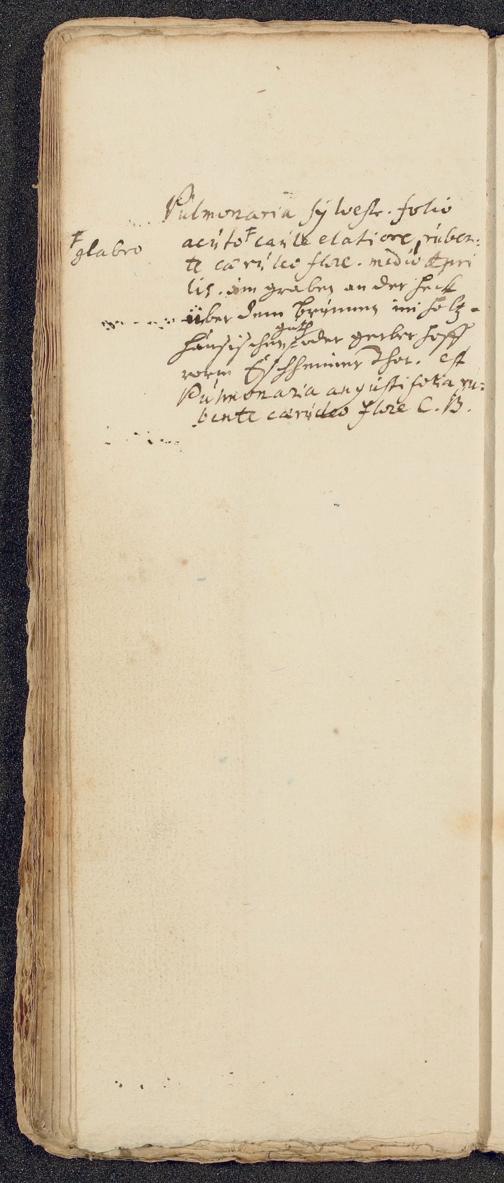 Pulmonaria sylvestr. folio
acuto ⸸ caule elatiore, ruben-
⸸ glabro
te cæruleo flore. medio Apri
lis. am graben an der heck
über dem brunnen im holtz-
guth
häusischen oder gerber hoff
vorm Eschheimer Thor. est
Pulmonaria angustifolia ru-
bente cæruleo flore C. B.